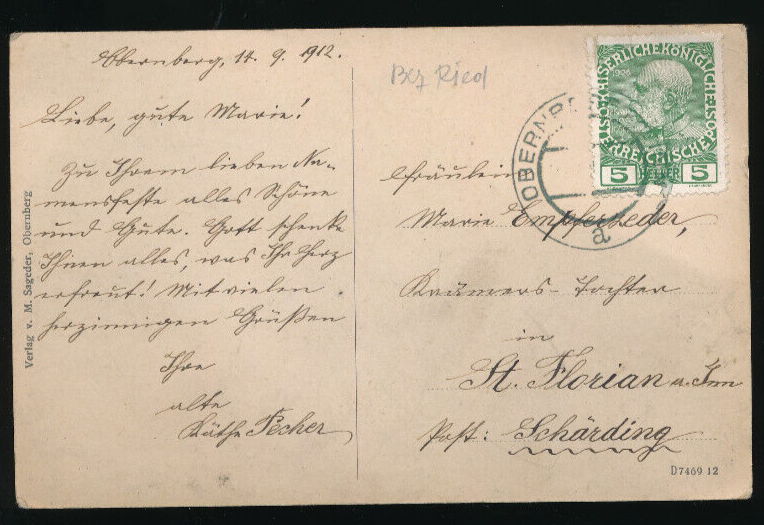 Obernberg, 14. 9. 1912.
Liebe, gute Marie!
Zu Ihrem lieben Na-
mensfeste alles Schöne
und Gute. Gott schenke
Ihnen alles, was Ihr Herz
erfreut! Mit vielen
herzinnigen Grüßen
Ihre
alte
Käthe Pecher
Verlag v. M. Sageder, Obernberg
Bez Ried
Fräulein
Marie Empferseder,
Krämers-Tochter
in
St. Florian a. Inn
Post: Schärding
D7469 12
OBERNBE
a
KAISERLICHE KÖNIGLICHE
ÖSTERREICHISCHE
1908
5 HELLER 5